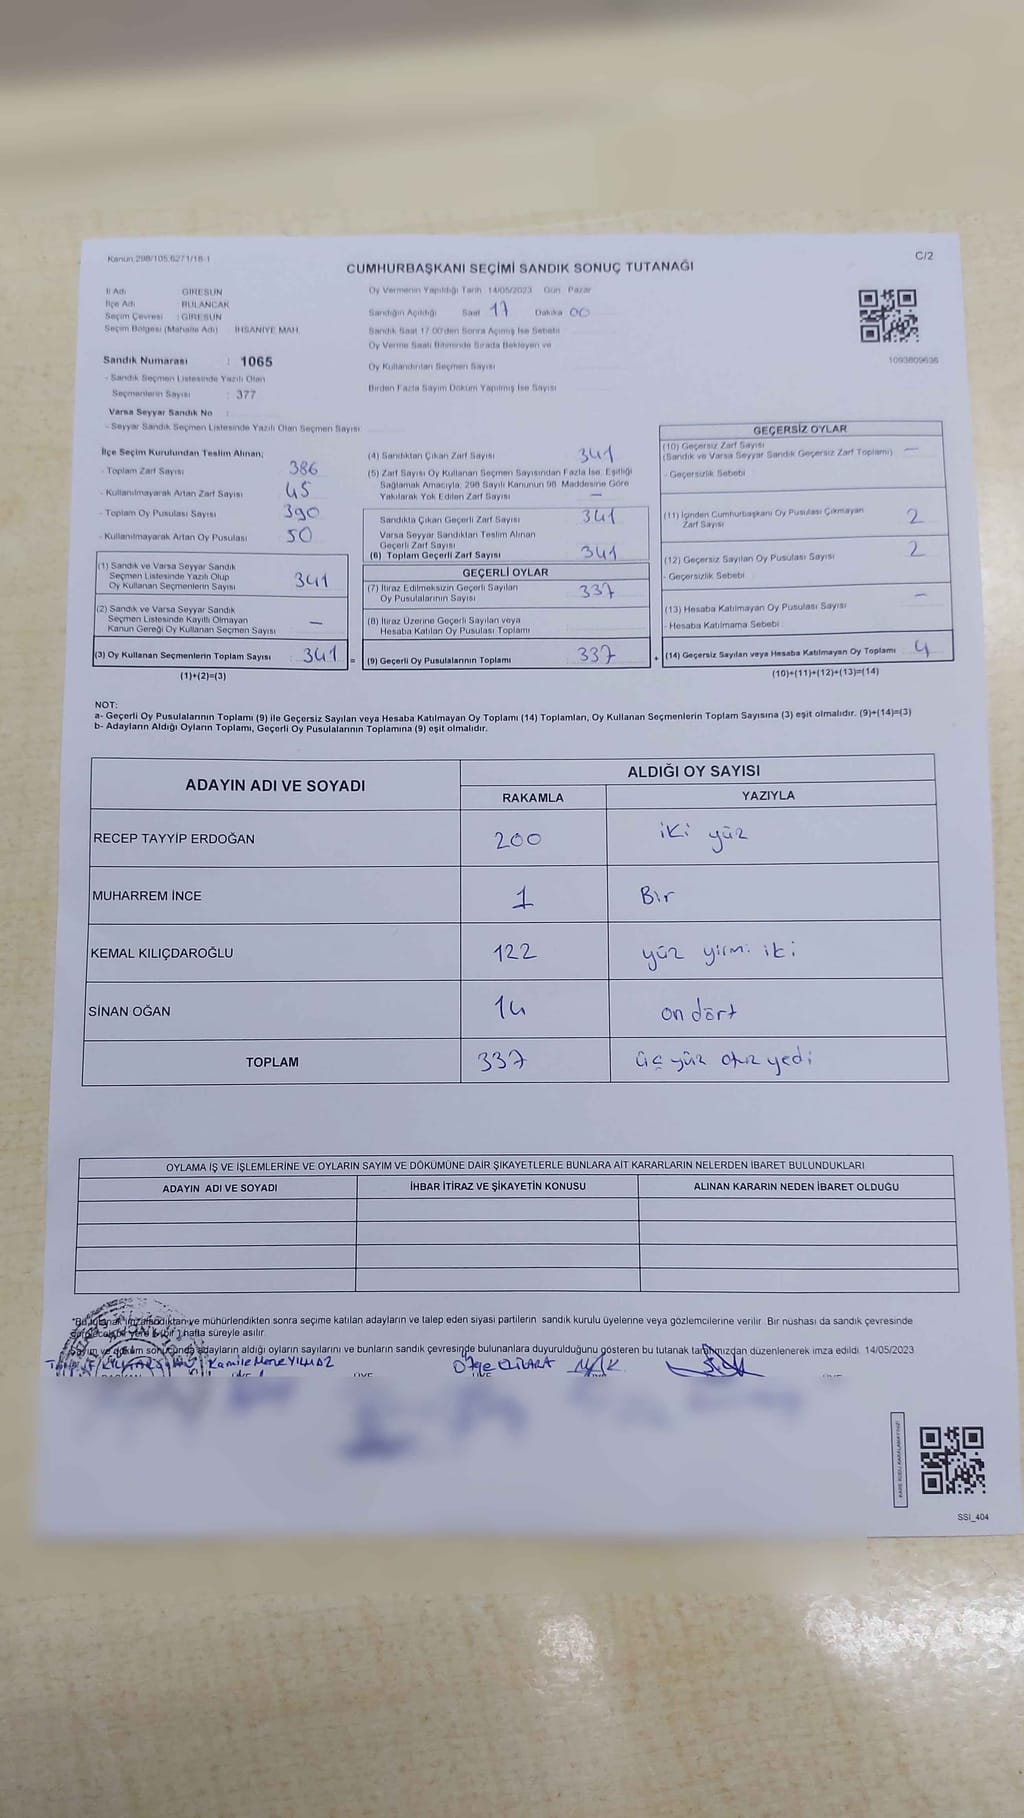 Kanun 298/105,6271/18-1
C/2
CUMHURBAŞKANI SEÇİMİ SANDIK SONUÇ TUTANAĞI
İl Adı GİRESUN
İlçe Adı BULANCAK
Seçim Çevresi : GİRESUN
Seçim Bölgesi (Mahalle Adı) : İHSANİYE MAH.
Oy Vermenin Yapıldığı Tarih 14/05/2023 Gün Pazar
Sandığın Açıldığı Saat 17 Dakika 00
Sandık Saat 17.00'den Sonra Açılmış İse Sebebi
Oy Verme Saati Bitiminde Sırada Bekleyen ve
Oy Kullandırılan Seçmen Sayısı
Birden Fazla Sayım Döküm Yapılmış İse Sayısı
1093809636
Sandık Numarası : 1065
- Sandık Seçmen Listesinde Yazılı Olan
Seçmenlerin Sayısı : 377
Varsa Seyyar Sandık No :
- Seyyar Sandık Seçmen Listesinde Yazılı Olan Seçmen Sayısı
İlçe Seçim Kurulundan Teslim Alınan;
- Toplam Zarf Sayısı 386
- Kullanılmayarak Artan Zarf Sayısı 45
- Toplam Oy Pusulası Sayısı 390
- Kullanılmayarak Artan Oy Pusulası 50
(1) Sandık ve Varsa Seyyar Sandık
Seçmen Listesinde Yazılı Olup
Oy Kullanan Seçmenlerin Sayısı 341
(2) Sandık ve Varsa Seyyar Sandık
Seçmen Listesinde Kayıtlı Olmayan
Kanun Gereği Oy Kullanan Seçmen Sayısı —
(3) Oy Kullanan Seçmenlerin Toplam Sayısı 341 =
(1)+(2)=(3)
(4) Sandıktan Çıkan Zarf Sayısı 341
(5) Zarf Sayısı Oy Kullanan Seçmen Sayısından Fazla İse, Eşitliği
Sağlamak Amacıyla, 298 Sayılı Kanunun 98. Maddesine Göre
Yakılarak Yok Edilen Zarf Sayısı —
Sandıkta Çıkan Geçerli Zarf Sayısı 341
Varsa Seyyar Sandıktan Teslim Alınan
Geçerli Zarf Sayısı
(6) Toplam Geçerli Zarf Sayısı 341
GEÇERLİ OYLAR
(7) İtiraz Edilmeksizin Geçerli Sayılan
Oy Pusulalarının Sayısı 337
(8) İtiraz Üzerine Geçerli Sayılan veya
Hesaba Katılan Oy Pusulası Toplamı
(9) Geçerli Oy Pusulalarının Toplamı 337 +
GEÇERSİZ OYLAR
(10) Geçersiz Zarf Sayısı
(Sandık ve Varsa Seyyar Sandık Geçersiz Zarf Toplamı) —
- Geçersizlik Sebebi
(11) İçinden Cumhurbaşkanı Oy Pusulası Çıkmayan
Zarf Sayısı 2
(12) Geçersiz Sayılan Oy Pusulası Sayısı 2
- Geçersizlik Sebebi
(13) Hesaba Katılmayan Oy Pusulası Sayısı —
- Hesaba Katılmama Sebebi
(14) Geçersiz Sayılan veya Hesaba Katılmayan Oy Toplamı 4
(10)+(11)+(12)+(13)=(14)
NOT:
a- Geçerli Oy Pusulalarının Toplamı (9) ile Geçersiz Sayılan veya Hesaba Katılmayan Oy Toplamı (14) Toplamları, Oy Kullanan Seçmenlerin Toplam Sayısına (3) eşit olmalıdır. (9)+(14)=(3)
b- Adayların Aldığı Oyların Toplamı, Geçerli Oy Pusulalarının Toplamına (9) eşit olmalıdır.
ADAYIN ADI VE SOYADI
ALDIĞI OY SAYISI
RAKAMLA YAZIYLA
RECEP TAYYİP ERDOĞAN 200 iki yüz
MUHARREM İNCE 1 Bir
KEMAL KILIÇDAROĞLU 122 yüz yirmi iki
SİNAN OĞAN 14 on dört
TOPLAM 337 üç yüz otuz yedi
OYLAMA İŞ VE İŞLEMLERİNE VE OYLARIN SAYIM VE DÖKÜMÜNE DAİR ŞİKAYETLERLE BUNLARA AİT KARARLARIN NELERDEN İBARET BULUNDUKLARI
ADAYIN ADI VE SOYADI İHBAR İTİRAZ VE ŞİKAYETİN KONUSU ALINAN KARARIN NEDEN İBARET OLDUĞU
*Bu tutanak imzalandıktan ve mühürlendikten sonra seçime katılan adayların ve talep eden siyasi partilerin sandık kurulu üyelerine veya gözlemcilerine verilir. Bir nüshası da sandık çevresinde
hafta süreyle asılır.
Sayım ve döküm sonucunda adayların aldığı oyların sayılarını ve bunların sandık çevresinde bulunanlara duyurulduğunu gösteren bu tutanak tarafımızdan düzenlenerek imza edildi. 14/05/2023
SSI_404